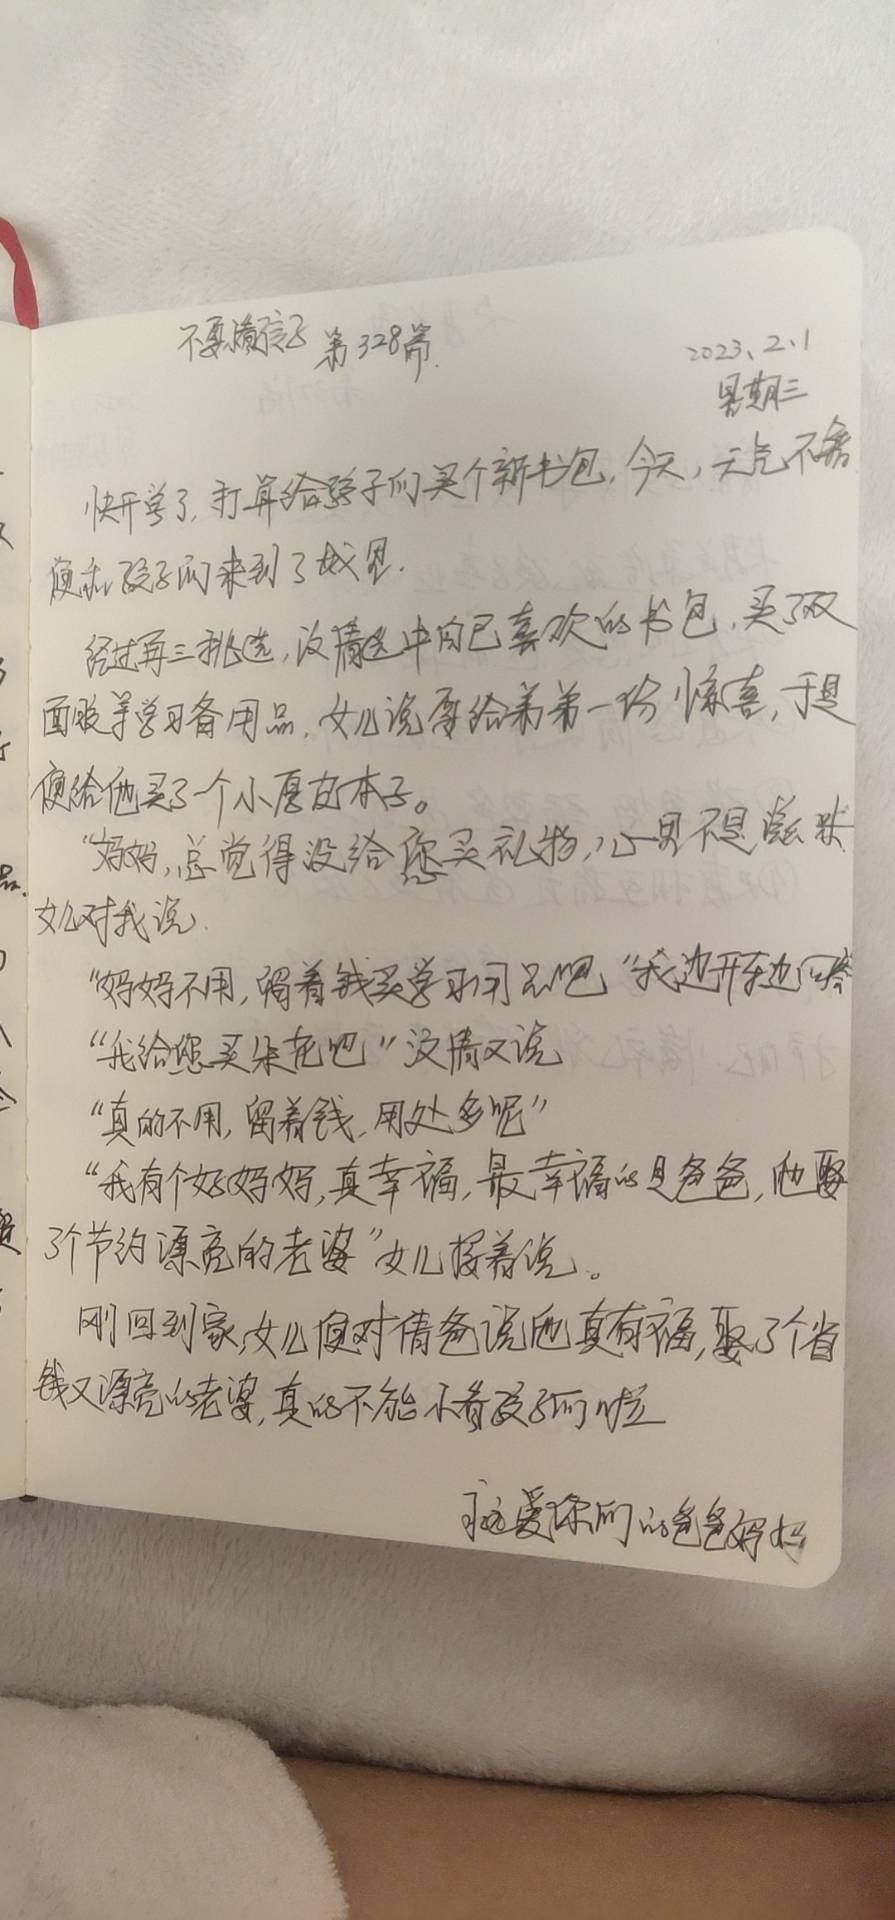 第328篇
2023.2.1
星期三
快开学了,打算给孩子们买个新书包,今天,天气不错
便和孩子们来到了城里.
经过再三挑选,汶倩选中自己喜欢的书包,买了双
面胶等学习备用品,女儿说要给弟弟一份惊喜,于是
便给他买了一个小厚皮本子。
"妈妈,总觉得没给您买礼物,心里不是滋味
女儿对我说.
"妈妈不用,留着钱买学习用品吧"我边开车边回答
"我给您买朵花吧"汶倩又说
"真的不用,留着钱,用处多呢"
"我有个好妈妈,真幸福,最幸福的是爸爸,他娶
了个节约漂亮的老婆"女儿接着说。
刚回到家,女儿便对倩爸说他真有福,娶了个省
钱又漂亮的老婆,真的不能小看孩子们啦
永远爱你们的爸爸妈妈